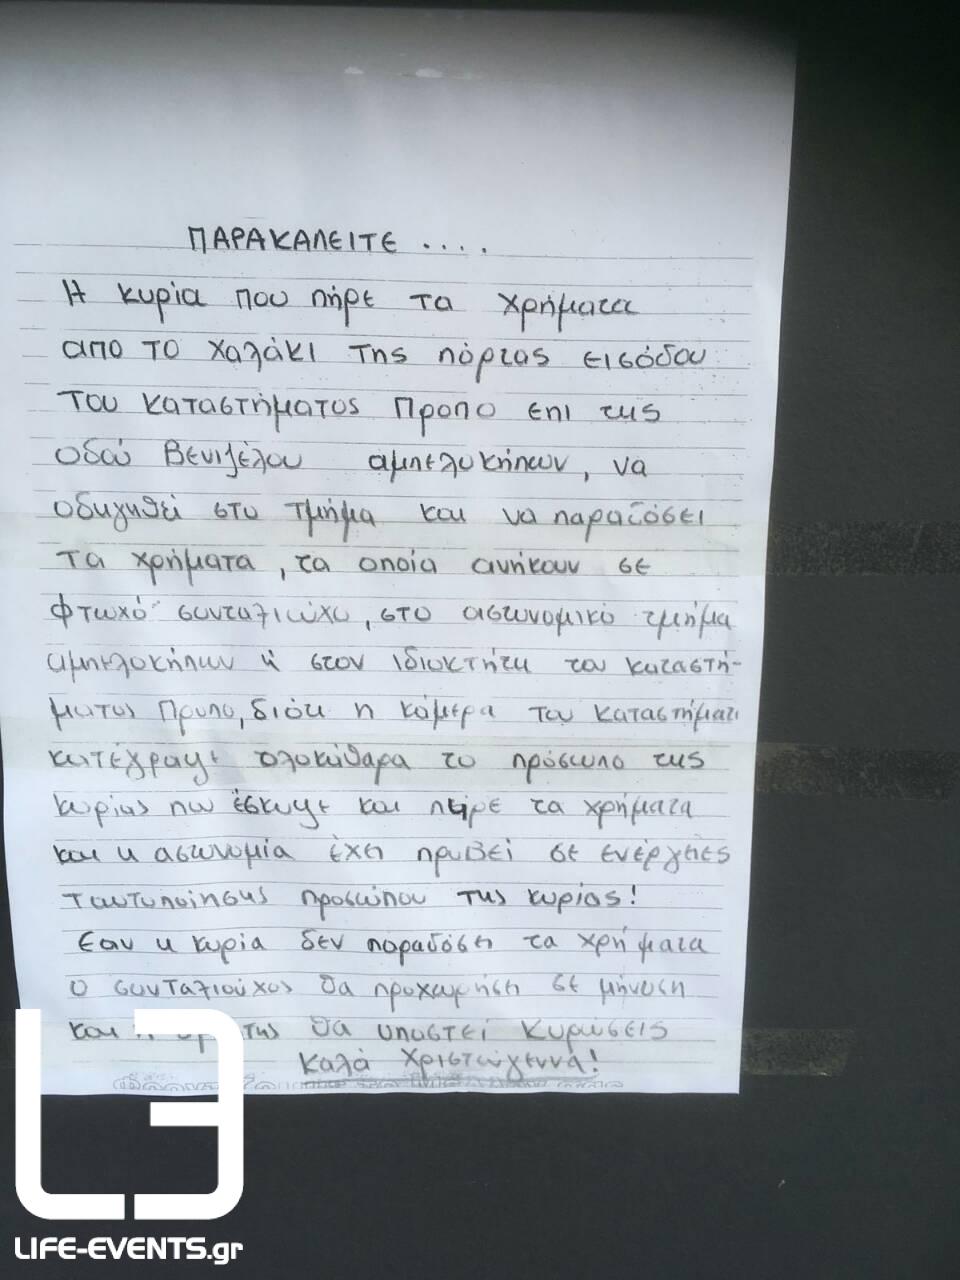 ΠΑΡΑΚΑΛΕΙΤΕ ....
Η κυρία που πήρε τα χρήματα
απο το χαλάκι της πόρτας εισόδου
του καταστήματος Προπο επι της
οδού Βενιζέλου αμπελοκήπων, να
οδηγηθεί στο τμήμα και να παραδόσει
τα χρήματα, τα οποία ανήκουν σε
φτωχό συνταξιούχο, στο αστυνομικό τμήμα
αμπελοκήπων ή στον ιδιοκτήτη του καταστή-
ματος Προπο, διότι η κάμερα του καταστήματι
κατέγραψε ολοκάθαρα το πρόσωπο της
κυρίας που έσκυψε και πήρε τα χρήματα
και η αστυνομία έχει προβεί σε ενέργειες
ταυτοποίησης προσώπου της κυρίας!
Εαν η κυρία δεν παραδόσει τα χρήματα
ο συνταξιούχος θα προχωρήσει σε μήνυση
και της θα υποστεί κυρώσεις
Καλά Χριστούγεννα!
LIFE-EVENTS.gr